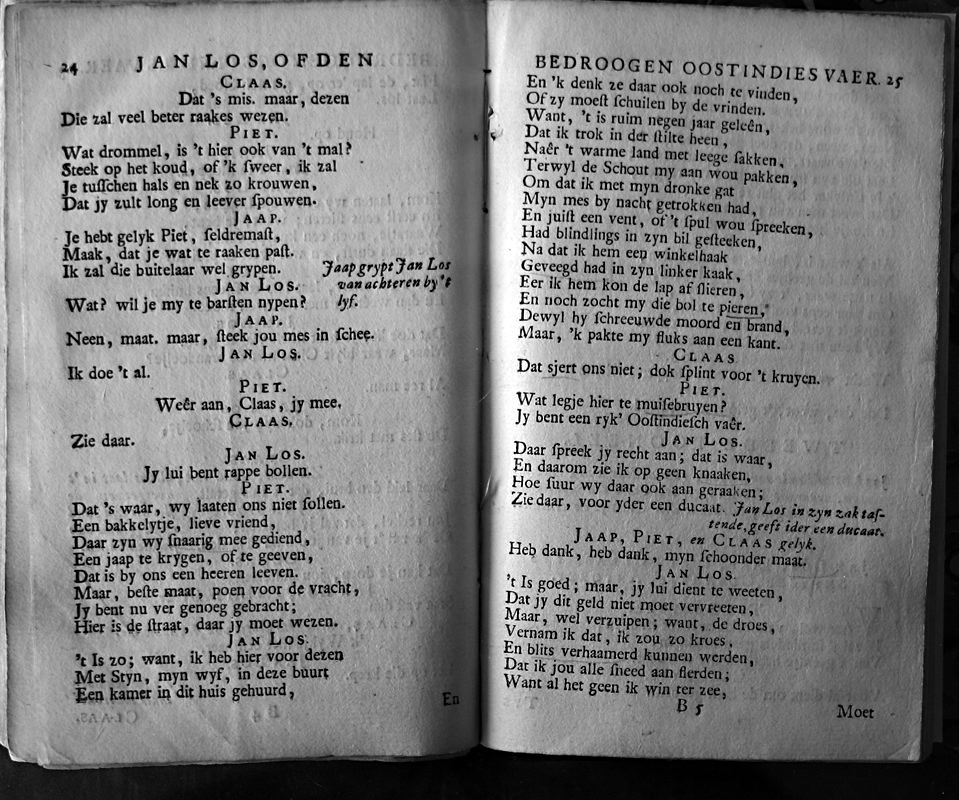 24 JAN LOS, OF DEN
CLAAS.
Dat 's mis. maar, dezen
Die zal veel beter raakes wezen.
PIET.
Wat drommel, is 't hier ook van 't mal?
Steek op het koud, of 'k ſweer, ik zal
Je tuſſchen hals en nek zo krouwen,
Dat jy zult long en leever ſpouwen.
JAAP.
Je hebt gelyk Piet, ſeldremaſt,
Maak, dat je wat te raaken paſt.
Ik zal die buitelaar wel grypen. Jaap grypt Jan Los
JAN LOS. van achteren by 't
Wat? wil je my te barſten nypen? lyf.
JAAP.
Neen, maat. maar, ſteek jou mes in ſchee.
JAN LOS.
Ik doe 't al.
PIET.
Weêr aan, Claas, jy mee.
CLAAS.
Zie daar.
JAN LOS.
Jy lui bent rappe bollen.
PIET.
Dat 's waar, wy laaten ons niet ſollen.
Een bakkelytje, lieve vriend,
Daar zyn wy ſnaarig mee gediend,
Een jaap te krygen, of te geeven,
Dat is by ons een heeren leeven.
Maar, beſte maat, poen voor de vracht,
Jy bent nu ver genoeg gebracht;
Hier is de ſtraat, daar jy moet wezen.
JAN LOS.
't Is zo; want, ik heb hier voor dezen
Met Styn, myn wyf, in deze buurt
Een kamer in dit huis gehuurd,
En
BEDROOGEN OOSTINDIES VAER. 25
En 'k denk ze daar ook noch te vinden,
Of zy moeſt ſchuilen by de vrinden.
Want, 't is ruim negen jaar geleên,
Dat ik trok in der ſtilte heen,
Naêr 't warme land met leege ſakken,
Terwyl de Schout my aan wou pakken,
Om dat ik met myn dronke gat
Myn mes by nacht getrokken had,
En juiſt een vent, of 't ſpul wou ſpreeken,
Had blindlings in zyn bil geſteeken,
Na dat ik hem een winkelhaak
Geveegd had in zyn linker kaak,
Eer ik hem kon de lap af ſlieren,
En noch zocht my die bol te pieren,
Dewyl hy ſchreeuwde moord en brand,
Maar, 'k pakte my fluks aan een kant.
CLAAS
Dat sjert ons niet; dok ſplint voor 't kruyen.
PIET.
Wat legje hier te muiſebruyen?
Jy bent een ryk' Ooſtindieſch vaêr.
JAN LOS.
Daar ſpreek jy recht aan; dat is waar,
En daarom zie ik op geen knaaken,
Hoe ſuur wy daar ook aan geraaken;
Zie daar, voor yder een ducaat. Jan Los in zyn zak taſ-
tende, geeft ider een ducaat.
JAAP, PIET, en CLAAS gelyk.
Heb dank, heb dank, myn ſchoonder maat.
JAN LOS.
't Is goed; maar, jy lui dient te weeten,
Dat jy dit geld niet moet vervreeten,
Maar, wel verzuipen; want, de droes,
Vernam ik dat, ik zou zo kroes,
En blits verhaamerd kunnen werden,
Dat ik jou alle ſneed aan flerden;
Want al het geen ik win ter zee,
B 5 Moet